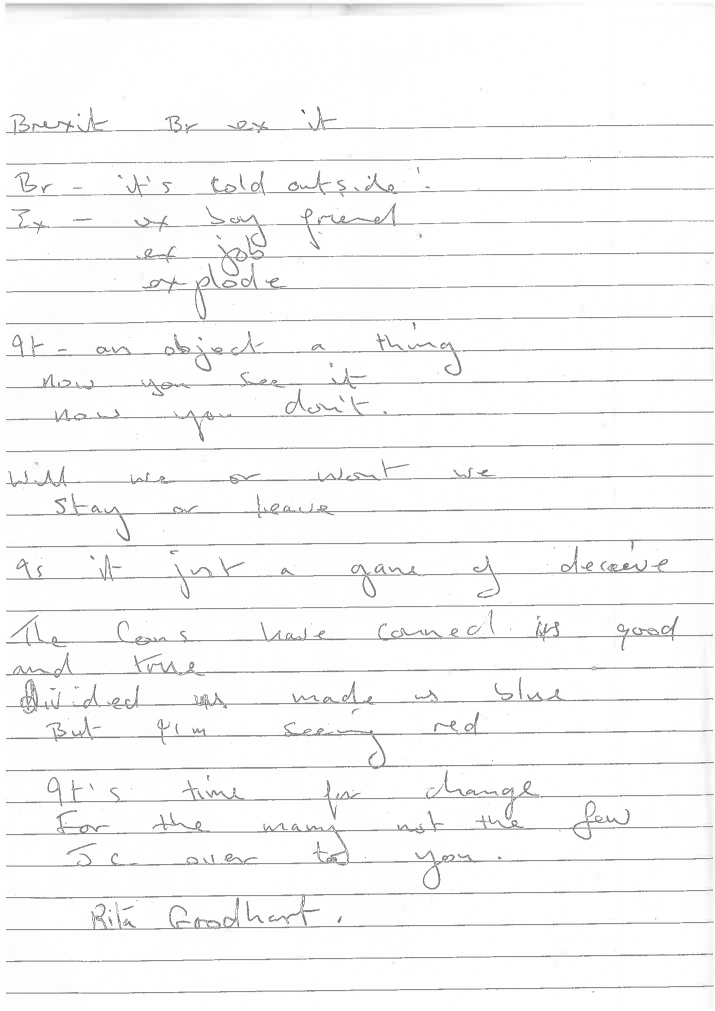 Brexit Br ex it
Br - it's cold outside!
Ex - ex boy friend
ex job
explode
It - an object a thing
now you see it
now you don't.
Will we or wont we
Stay or leave
Is it just a game of deceive
The Cons have conned us good
and true
Divided us made us blue
But I'm seeing red
It's time for change
For the many not the few
J c over to you.
Rita Goodhart.